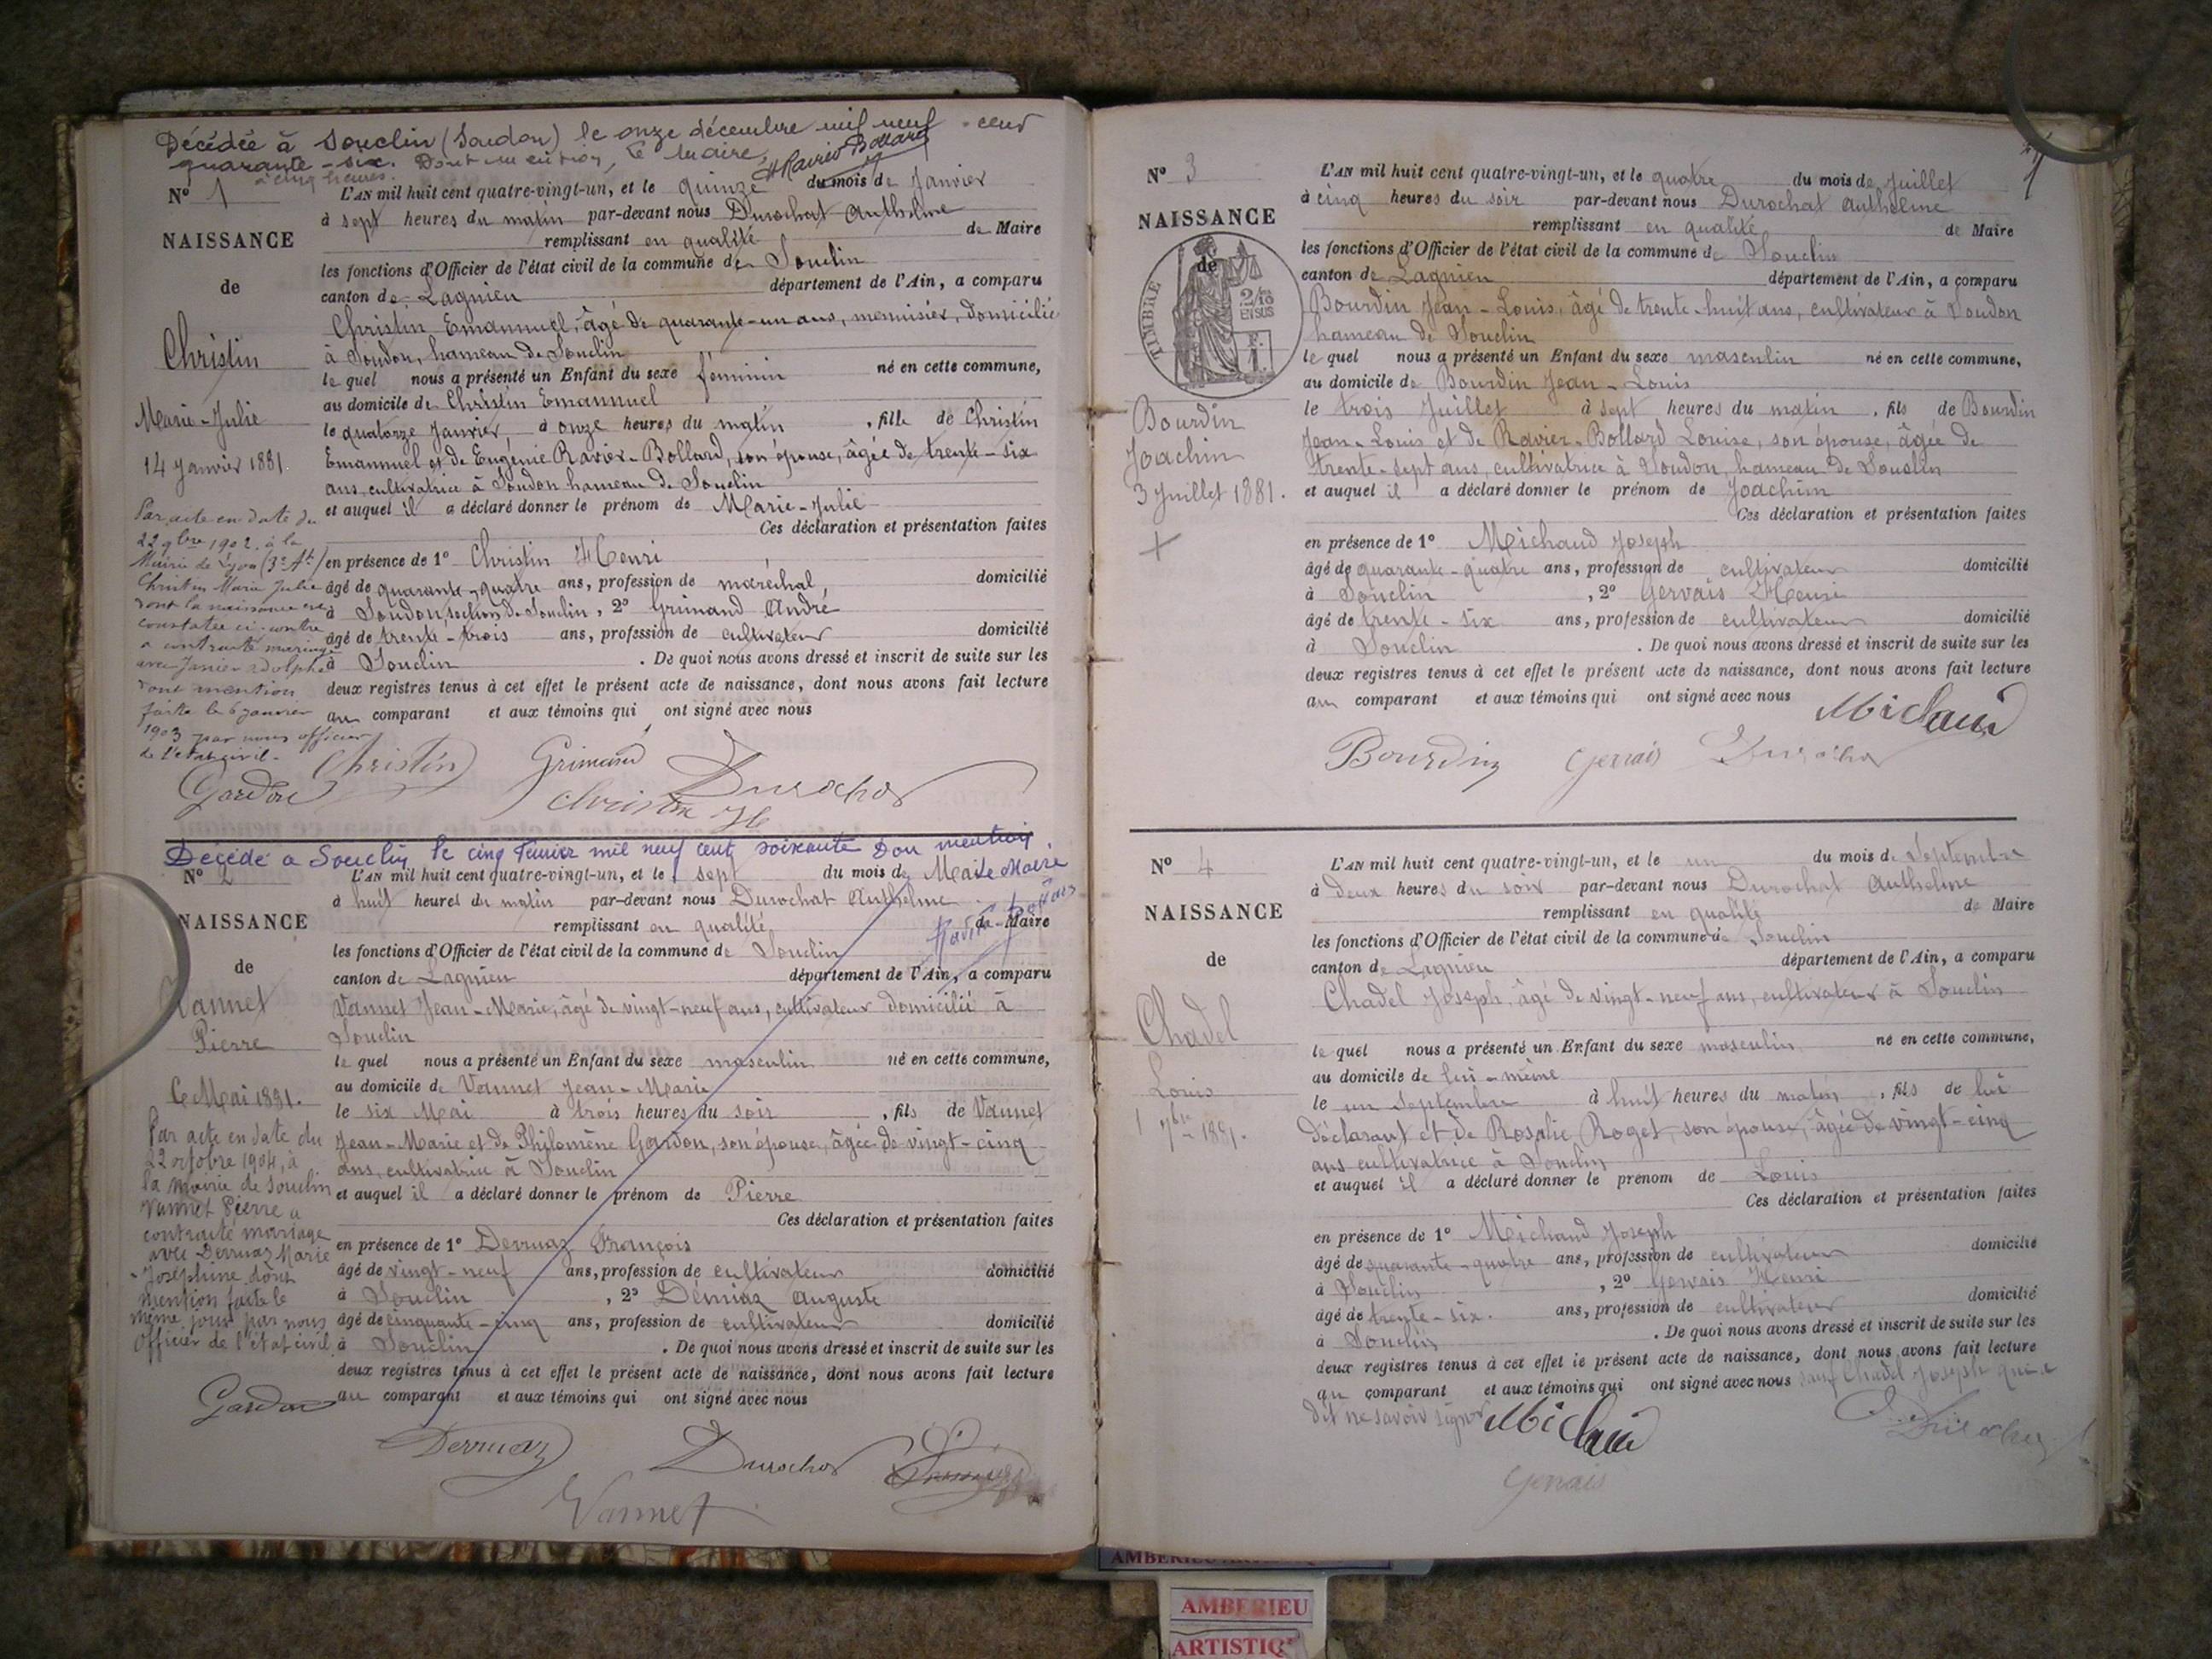 Décédée à Souclin (Soudon) le onze décembre mil neuf cent
quarante-six. Dont mention, Le Maire,
à cinq heures. H Ravier Bollard
N° 1
NAISSANCE
de
Christin
Marie-Julie
14 Janvier 1881.
Par acte en date du
22 9bre 1902, à la
Mairie de Lyon (3e Art)
Christin Marie Julie
dont la naissance est
constatée ci-contre
a contracté mariage
avec Janier Adolphe
dont mention
faite le 6 janvier
1903 par nous officier
de l'état civil.
L'AN mil huit cent quatre-vingt-un, et le quinze du mois de Janvier
à sept heures du matin par-devant nous Durochat Anthelme
remplissant en qualité de Maire
les fonctions d'Officier de l'état civil de la commune de Souclin
canton de Lagnieu département de l'Ain, a comparu
Christin Emannuel, âgé de quarante-un ans, menuisier, domicilié
à Soudon, hameau de Souclin
le quel nous a présenté un Enfant du sexe féminin né en cette commune,
au domicile de Christin Emannuel
le quatorze Janvier à onze heures du matin , fille de Christin
Emannuel et de Eugénie Ravier-Bollard, son épouse, âgée de trente-six
ans, cultivatrice à Soudon hameau de Souclin
et auquel il a déclaré donner le prénom de Marie-Julie
Ces déclaration et présentation faites
en présence de 1° Christin Henri
âgé de quarante-quatre ans, profession de maréchal, domicilié
à Soudon, section de Souclin, 2° Grimand André
âgé de trente-trois ans, profession de cultivateur domicilié
à Souclin . De quoi nous avons dressé et inscrit de suite sur les
deux registres tenus à cet effet le présent acte de naissance, dont nous avons fait lecture
au comparant et aux témoins qui ont signé avec nous
Christin Grimand Durochat
Gardon Christin H
Décédé a Souclin le cinq Fevrier mil neuf cent soixante Don mention
Le Maire
Ravier Bollard
N° 2
NAISSANCE
de
Vannet
Pierre
6 Mai 1881.
Par acte en date du
22 octobre 1904, à
la mairie de Souclin
Vannet Pierre a
contracté mariage
avec Derruaz Marie
Joséphine dont
mention faite le
même jour par nous
Officier de l'état civil.
Gardon
L'AN mil huit cent quatre-vingt-un, et le sept du mois de Mai
à huit heures du matin par-devant nous Durochat Anthelme
remplissant en qualité de Maire
les fonctions d'Officier de l'état civil de la commune de Souclin
canton de Lagnieu département de l'Ain, a comparu
Vannet Jean-Marie, âgé de vingt-neuf ans, cultivateur domicilié à
Souclin
le quel nous a présenté un Enfant du sexe masculin né en cette commune,
au domicile de Vannet Jean-Marie
le six Mai à trois heures du soir , fils de Vannet
Jean-Marie et de Philomène Gardon, son épouse, âgée de vingt-cinq
ans, cultivatrice à Souclin
et auquel il a déclaré donner le prénom de Pierre
Ces déclaration et présentation faites
en présence de 1° Derruaz François
âgé de vingt-neuf ans, profession de cultivateur domicilié
à Souclin , 2° Derriaz Auguste
âgé de cinquante-cinq ans, profession de cultivateur domicilié
à Souclin . De quoi nous avons dressé et inscrit de suite sur les
deux registres tenus à cet effet le présent acte de naissance, dont nous avons fait lecture
au comparant et aux témoins qui ont signé avec nous
Derruaz Durochat
Vannet
N° 3
NAISSANCE
de
TIMBRE
2/10
EN SUS
F.
1.
Bourdin
Joachim
3 Juillet 1881.
L'AN mil huit cent quatre-vingt-un, et le quatre du mois de Juillet
à cinq heures du soir par-devant nous Durochat Anthelme
remplissant en qualité de Maire
les fonctions d'Officier de l'état civil de la commune de Souclin
canton de Lagnieu département de l'Ain, a comparu
Bourdin Jean-Louis, âgé de trente-huit ans, cultivateur à Soudon
hameau de Souclin
le quel nous a présenté un Enfant du sexe masculin né en cette commune,
au domicile de Bourdin Jean-Louis
le trois Juillet à sept heures du matin , fils de Bourdin
Jean-Louis et de Ravier-Bollard Louise, son épouse, âgée de
trente-sept ans, cultivatrice à Soudon, hameau de Souclin
et auquel il a déclaré donner le prénom de Joachim
Ces déclaration et présentation faites
en présence de 1° Michaud Joseph
âgé de quarante-quatre ans, profession de cultivateur domicilié
à Souclin , 2° Gervais Henri
âgé de trente-six ans, profession de cultivateur domicilié
à Souclin . De quoi nous avons dressé et inscrit de suite sur les
deux registres tenus à cet effet le présent acte de naissance, dont nous avons fait lecture
au comparant et aux témoins qui ont signé avec nous
Michaud
Bourdin Gervais Durochat
N° 4
NAISSANCE
de
Chadel
Louis
1 7bre 1881.
L'AN mil huit cent quatre-vingt-un, et le un du mois de Septembre
à deux heures du soir par-devant nous Durochat Anthelme
remplissant en qualité de Maire
les fonctions d'Officier de l'état civil de la commune de Souclin
canton de Lagnieu département de l'Ain, a comparu
Chadel Joseph, âgé de vingt-neuf ans, cultivateur à Souclin
le quel nous a présenté un Enfant du sexe masculin né en cette commune,
au domicile de lui-même
le un Septembre à huit heures du matin , fils de lui
déclarant et de Rosalie Roget, son épouse, âgée de vingt-cinq
ans cultivatrice à Souclin
et auquel il a déclaré donner le prénom de Louis
Ces déclaration et présentation faites
en présence de 1° Michaud Joseph
âgé de quarante-quatre ans, profession de cultivateur domicilié
à Souclin , 2° Gervais Henri
âgé de trente-six. ans, profession de cultivateur domicilié
à Souclin . De quoi nous avons dressé et inscrit de suite sur les
deux registres tenus à cet effet le présent acte de naissance, dont nous avons fait lecture
au comparant et aux témoins qui ont signé avec nous sauf Chadel Joseph qui a
dit ne savoir signer Michaud Durochat
Gervais
AMBERIEU
AMBERIEU
ARTISTIQ